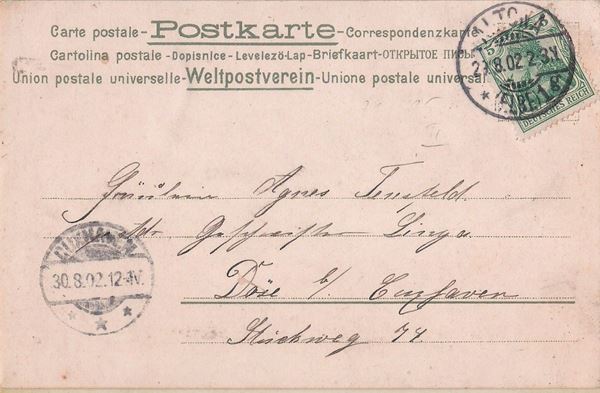 Carte postale - Postkarte - Correspondenzkarte
Cartolina postale - Dopisnice - Levelező-Lap - Briefkaart - ОТКРЫТОЕ ПИСЬ
Union postale universelle - Weltpostverein - Unione postale universal
ALTONA
8.02.2-3N.
(ELBE) 1
DEUTSCHES REICH
Fräulein Agnes Tensfeld.
Geschwister
Döse b/ Cuxhaven
74
CUXHAVEN
30.8.02.12-1V.